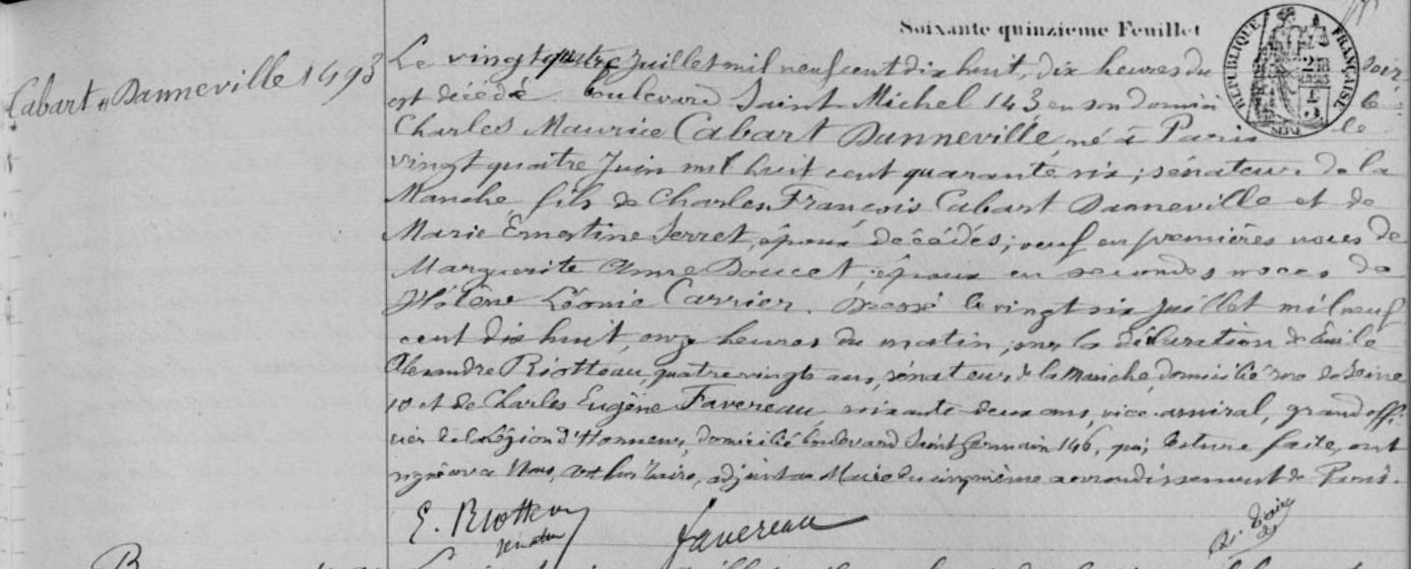 Soixante quinzieme Feuillet
RÉPUBLIQUE FRANÇAISE
Cabart Danneville 1493
Le vingt quatre Juillet mil neuf cent dix huit, dix heures du soir
est décédé boulevard Saint Michel 143 en son domici le
Charles Maurice Cabart Danneville né à Paris le
vingt quatre Juin mil huit cent quarante six; sénateur de la
Manche fils de Charles François Cabart Danneville et de
Marie Ernestine Serret, époux décédés; veuf en premières noces de
Marguerite Anne Doucet, époux en secondes noces de
Hélène Léonie Carrier. Dressé le vingt six Juillet mil neuf
cent dix huit, onze heures du matin, sur la déclaration de Emile
Alexandre Riotteau, quatre vingts ans, sénateur de la Manche, domicilié rue de Seine
10 et de Charles Eugène Favereau soixante deux ans, vice-amiral, grand offi-
cier de la Légion d'Honneur, domicilié boulevard Saint Germain 146, qui, lecture faite, ont
signé avec Nous, adjoint au Maire du cinquième arrondissement de Paris.
E. Riotteau
sénateur
Favereau